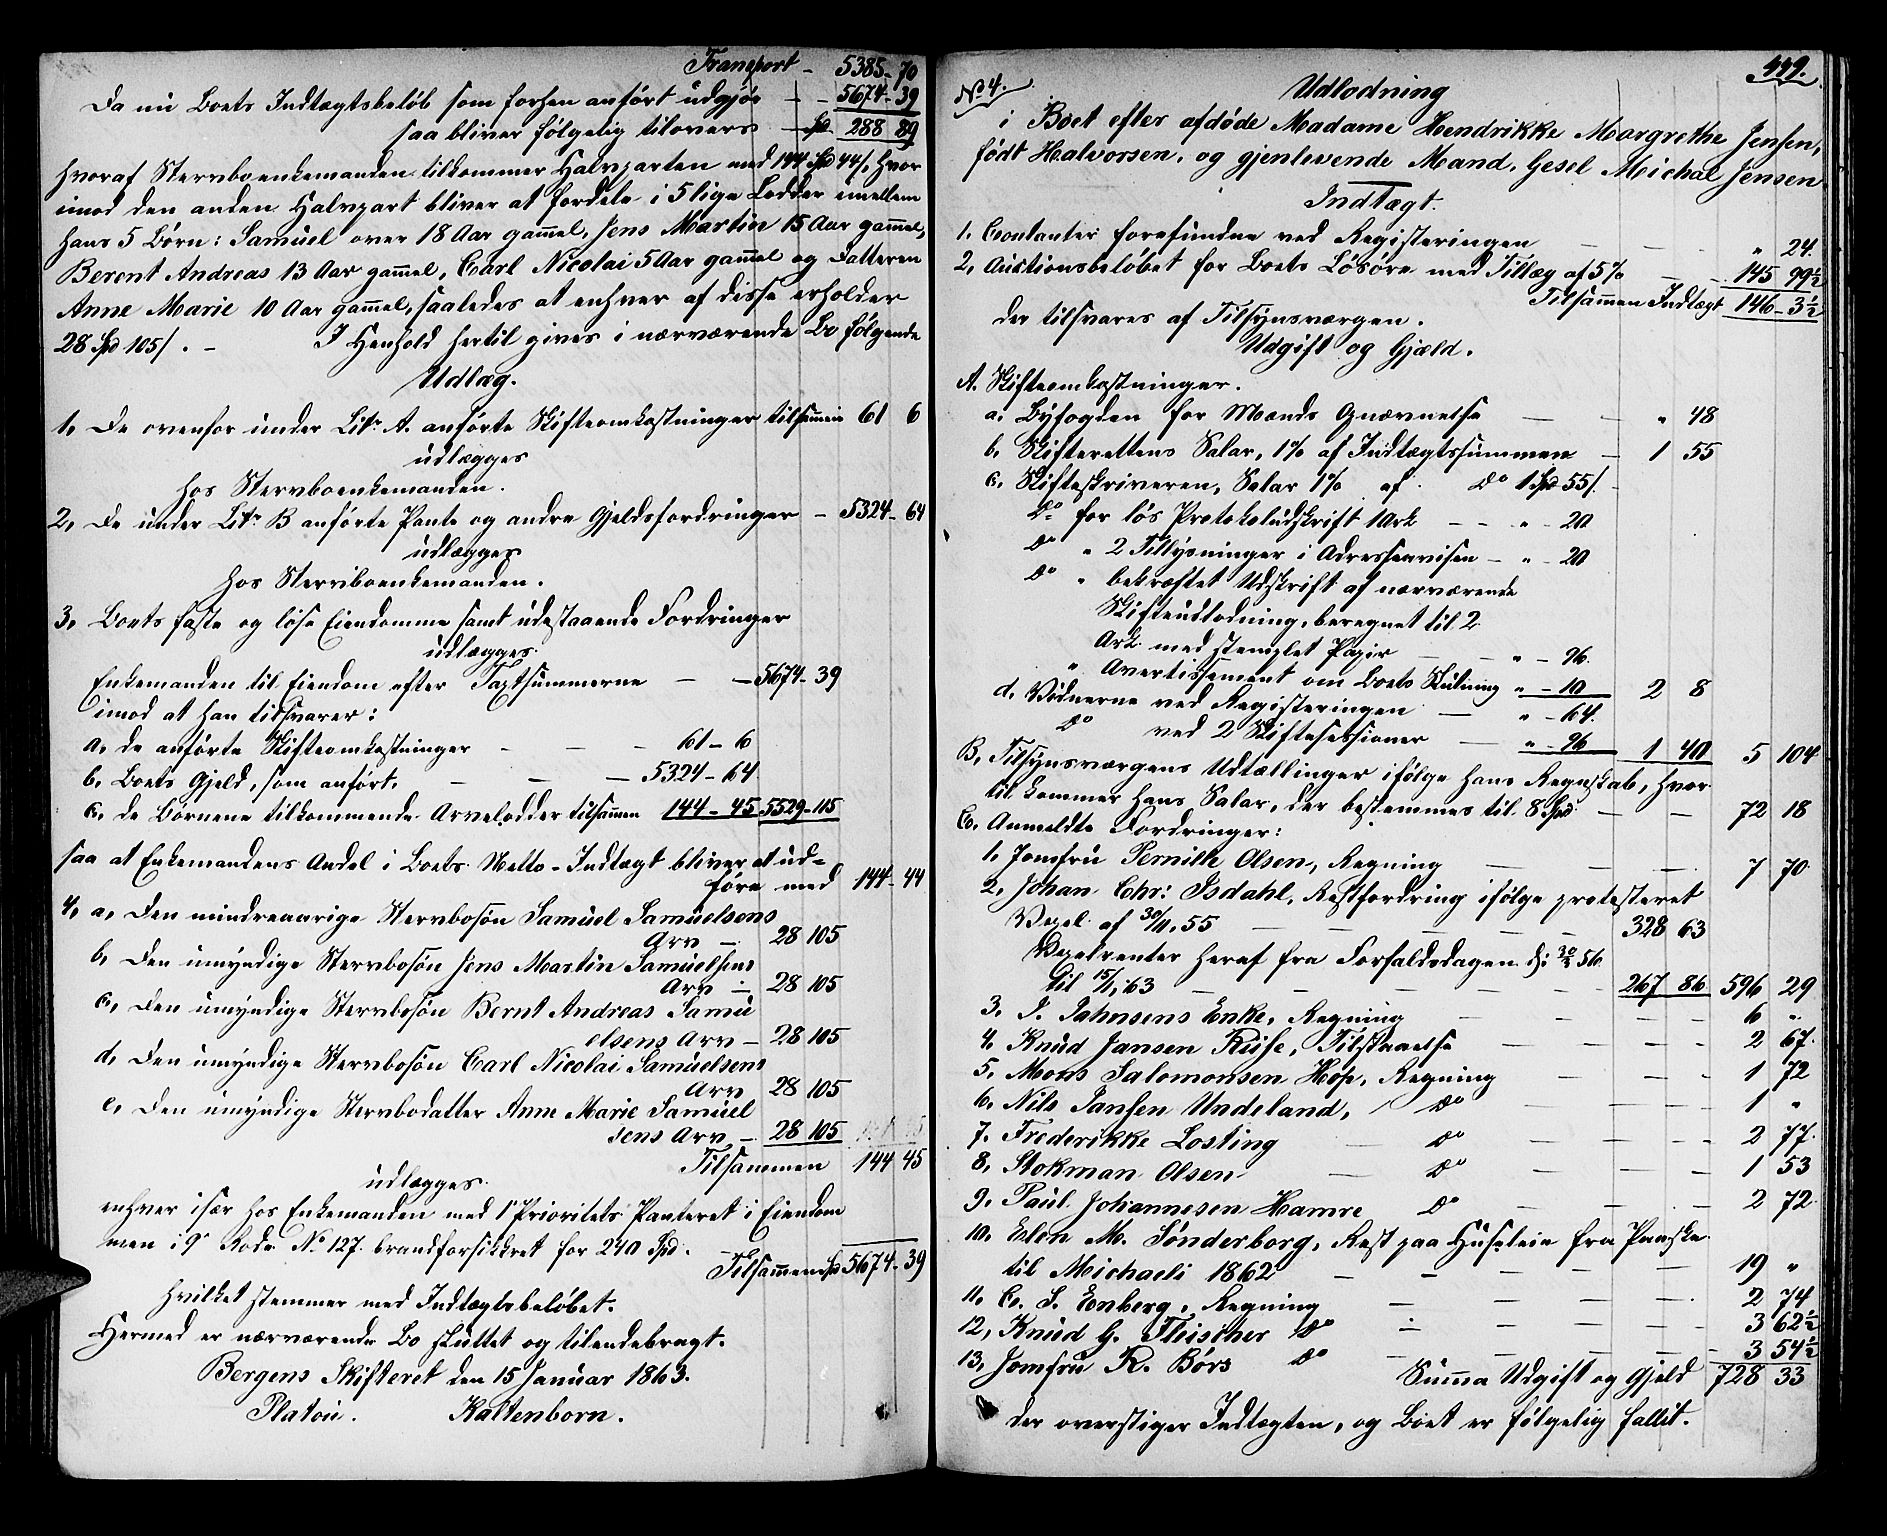 Transport - 5385-70
Da nu Boets Indtægtsbeløb som forhen anført udgjør - - 5674-39
saa bliver følgelig tilovers - Spd. 288 89
hvoraf Stervboenkemanden tilkommer Halvparten med 144 Spd 44/, hvor
imod den anden Halvpart bliver at fordele i 5 lige Lodder imellem
hans 5 Børn: Samuel over 18 Aar gam̅el, Jens Martin 15 Aar gam̅el,
Berent Andreas 13 Aar gam̅el, Carl Nicolai 5 Aar gam̅el og Datteren
Anne Marie 10 Aar gam̅el, saaledes at enhver af disse erholder
28 Spd 105/. - I Henhold hertil gives i nærværende Bo følgende
Udlæg.
1, De ovenfor under Litr A. anførte Skifteomkostninger tilsam̅en 61 6
udlægges
hos Stervboenkemanden.
2, De under Litr B anførte Pante og andre Gjeldsfordringer - 5324-64
udlægges
hos Stervboenkemanden.
3, Boets faste og løse Eiendomme samt udestaaende Fordringer
udlægges
Enkemanden til Eiendom efter Taxtsummerne - - 5674-39
imod at han tilsvarer:
a, de anførte Skifteomkostninger - - - 61-6
b, Boets Gjeld, som anført. - - - 5324-64
c, de Børnene tilkommende Arvelodder tilsam̅en 144-45 5529-115
saa at Enkemandens Andel i Boets Netto-Indtægt bliver at ud-
føre med 144-44
4, a, Den mindreaarige Stervbosøn Samuel Samuelsens
Arv - 28 105
b, Den umyndige Stervbosøn Jens Martin Samuelsens
Arv - 28 105
c, Den umyndige Stervbosøn Bernt Andreas Samu
elsens Arv - 28 105
d, Den umyndige Stervbosøn Carl Nicolai Samuelsens
Arv 28 105
e, Den umyndige Stervbodatter Anne Marie Samuel
sens Arv - 28 105
Tilsammen 144 45
udlægges
enhver især hos Enkemanden med 1ste Prioritets Panteret i Eiendom
men i 9de Rode No 127. brandforsikkret for 240 Spd.
Tilsam̅en Spd 5674-39
hvilket stemmer med Indtægtsbeløbet.
Hermed er nærværende Bo sluttet og tilendebragt.
Bergens Skifteret den 15 Januar 1863.
Platou. Kaltenborn.
449.
No 4. Udlodning
i Boet efter afdøde Madame Hendrikke Margrethe Jensen,
født Halvorsen, og gjenlevende Mand, Gesel Michal Jensen
Indtægt.
1. Contanter forefundne ved Registeringen - - - " 24.
2, Auctionsbeløbet for Boets Løsøre med Tillæg af 5% - - 145 99½
Tilsam̅en Indtægt 146-3½
der tilsvares af Tilsynsværgen.
Udgift og Gjæld.
A. Skifteomkostninger.
a. Byfogden for Mænds Opnævnelse - - " 48
b, Skifterettens Salar, 1% af Indtægtssummen - 1 55
c, Skifteskriveren, Salar 1% af Do 1 Spd 55/.
Do for løs Protokoludskrift 1 Ark - - " - 20
Do " 2 Tillysninger i Adresseavisen - " - 20
Do " bekræftet Udskrift af nærværende
Skifteudlodning, beregnet til 2
Ark. med stemplet Papir - - " - 96.
" Avertissement om Boets Slutning " - 10 2 8
d, Vidnerne ved Registeringen - " - 64.
Do ved 2 Skiftesessioner - " - 96 1 40 5 104
B, Tilsynsværgens Udtællinger ifølge hans Regnskab, hvor
til kommer hans Salar, der bestemmes til 8 Spd - - 72 18
C, Anmeldte Fordringer:
1, Jomfru Pernille Olsen, Regning - - - 7 70.
2, Johan Chr: Isdahl, Restfordring ifølge protesteret
Vexel af 30/11, 55 - - - - - 328 63
Vexelrenter heraf fra Forfaldsdagen d: 30/2 56
til 15/1, 63 - - - - - 267 86 596 29
3, J. Jahnsens Enke, Regning - - - - 6 "
4, Knud Jansen Ruse, Tilstaaelse - - - - 2 67.
5, Mons Salomonsen Hop, Regning - - - 1 72
6, Nils Jansen Undeland, Do - - - - 1 "
7. Frederikke Losting - Do - - - - 2 77.
8, Stokman Olsen - Do - - - - 1 53
9, Paul Johannesen Hamre Do - - - - 2 72.
10, Elen M. Sønderborg, Rest paa Husleie fra Paaske
til Michaeli 1862 - - - - - 19 "
11, C. S. Enberg, Regning - - - - 2 74
12, Knud G. Fleischer Do - - - - 3 62½
13, Jomfru R. Børs Do - - - - 3 54½
Sum̅a Udgift og Gjeld 728 33
der overstiger Indtægten, og Boet er følgelig fallit.